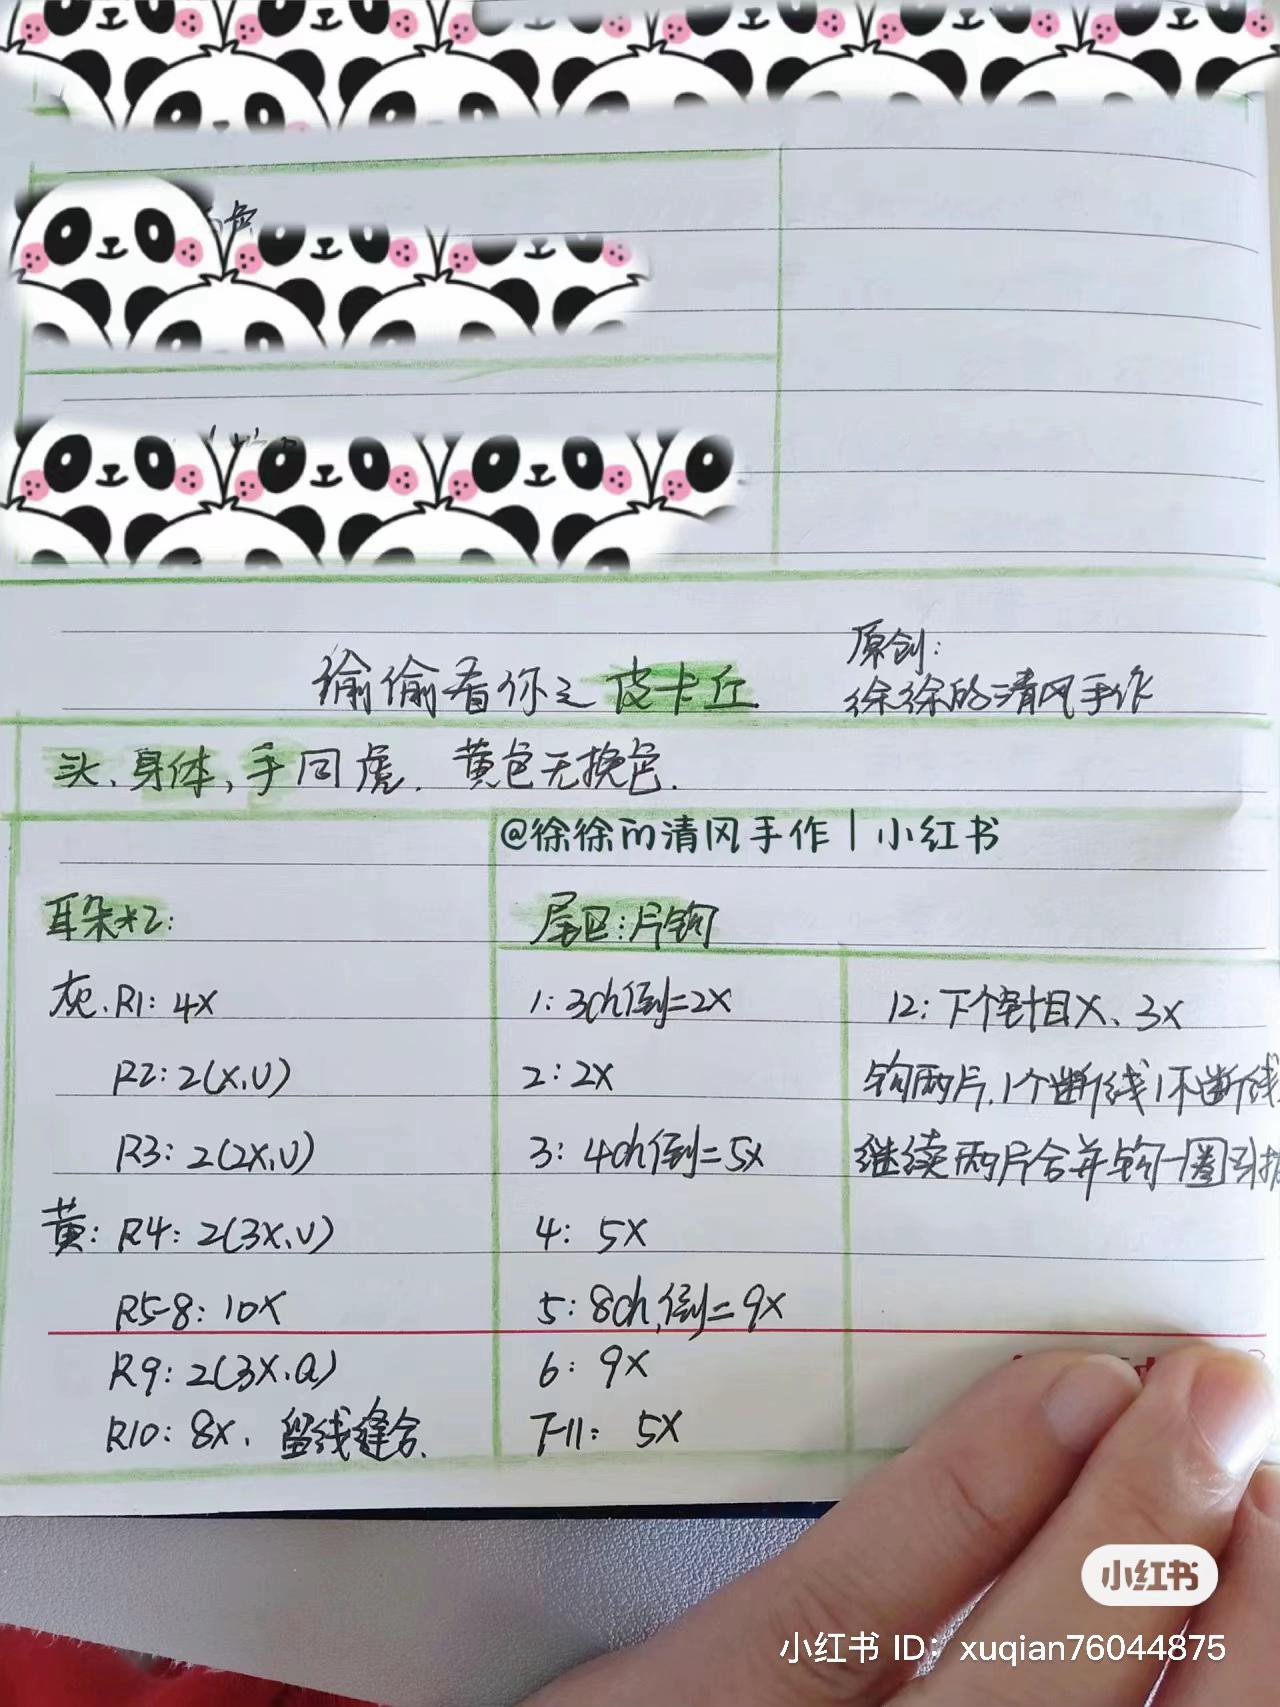 色
原创:
偷偷看你之皮卡丘
徐徐的清风手作
头、身体,手同虎. 黄色无换色.
@徐徐的清风手作|小红书
耳朵*2:
灰.R1: 4X
R2: 2(X,V)
R3: 2(2X,V)
黄: R4: 2(3X,V)
R5-8: 10X
R9: 2(3X,A)
R10: 8X, 留线缝合.
尾巴:片钩
1: 3ch倒=2X
2: 2X
3: 4ch倒=5X
4: 5X
5: 8ch,倒=9X
6: 9X
7-11: 5X
12: 下个针目X、3X
钩两片,1个断线1不断线
继续两片合并钩一圈引拔
小红书
小红书 ID: xuqian76044875